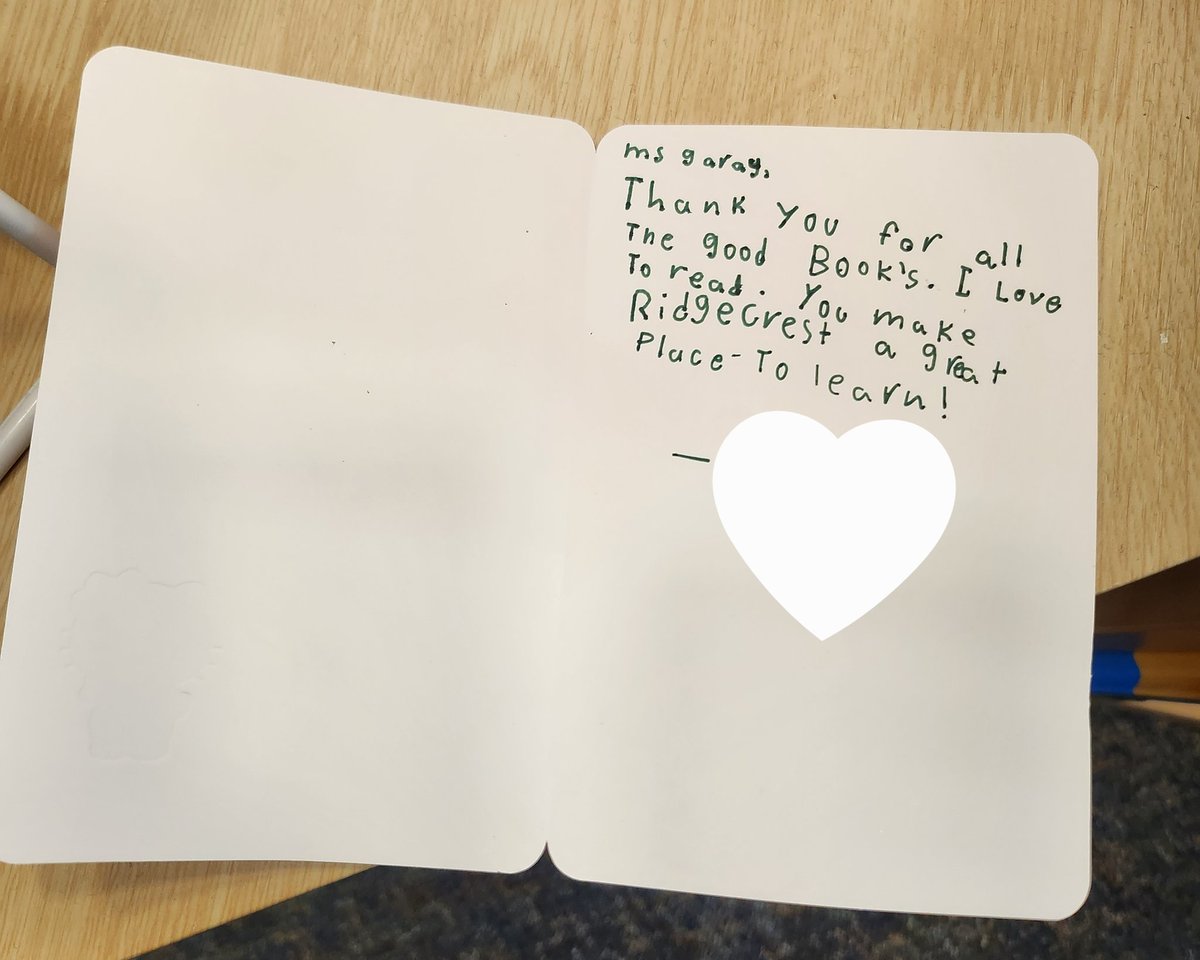 ms garay,
Thank you for all
The good Book's. I Love
To read. You make
Ridgecrest a great
Place-To learn!
—